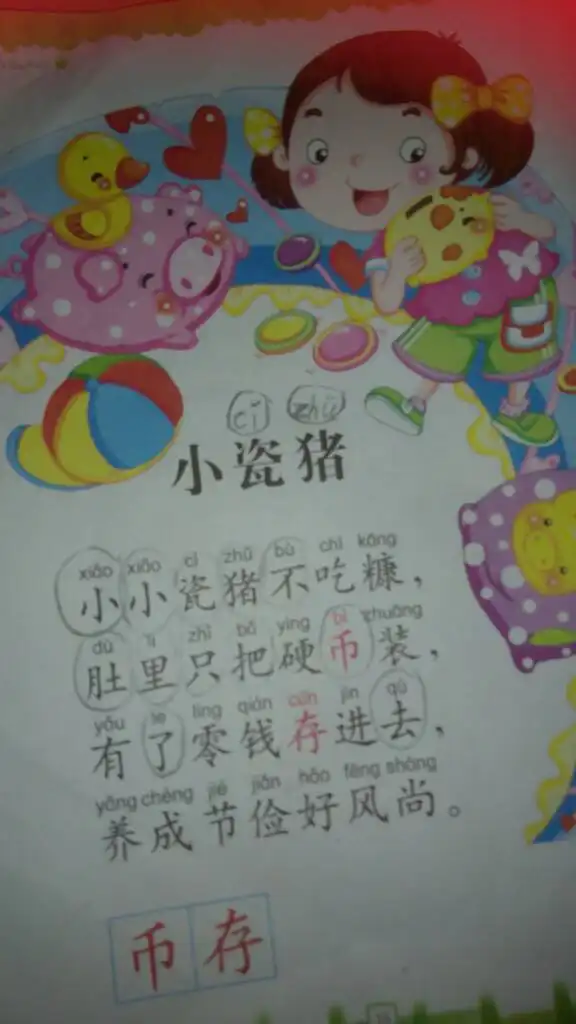 cí zhū
小瓷猪
xiǎo xiǎo cí zhū bù chī kāng
小小瓷猪不吃糠，
dù lǐ zhǐ bǎ yìng bì zhuāng
肚里只把硬币装，
yǒu le líng qián cún jìn qù
有了零钱存进去，
yǎng chéng jié jiǎn hǎo fēng shàng
养成节俭好风尚。
币存